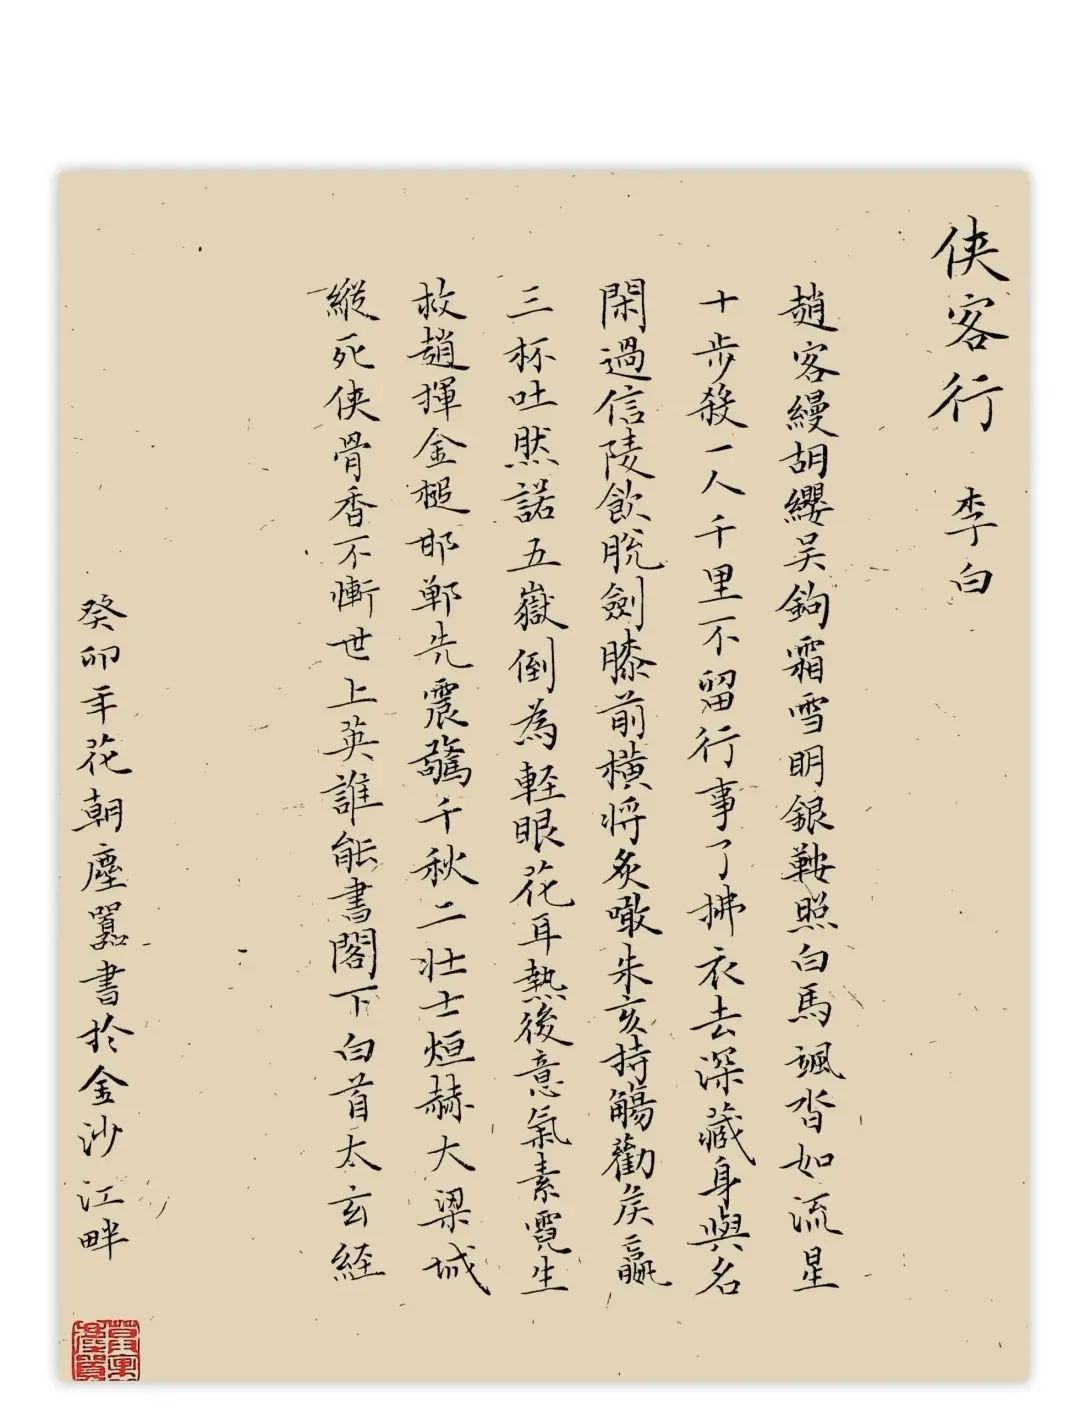 俠客行 李白
趙客縵胡纓吴鉤霜雪明銀鞍照白馬颯沓如流星
十步殺一人千里不留行事了拂衣去深藏身與名
閑過信陵飲脫劍膝前橫將炙噉朱亥持觴勸矦嬴
三杯吐然諾五嶽倒為輕眼花耳熱後意氣素霓生
救趙揮金槌邯鄲先震驚千秋二壮士烜赫大梁城
縱死俠骨香不慚世上英誰能書閣下白首太玄経
癸卯年花朝塵囂書於金沙江畔